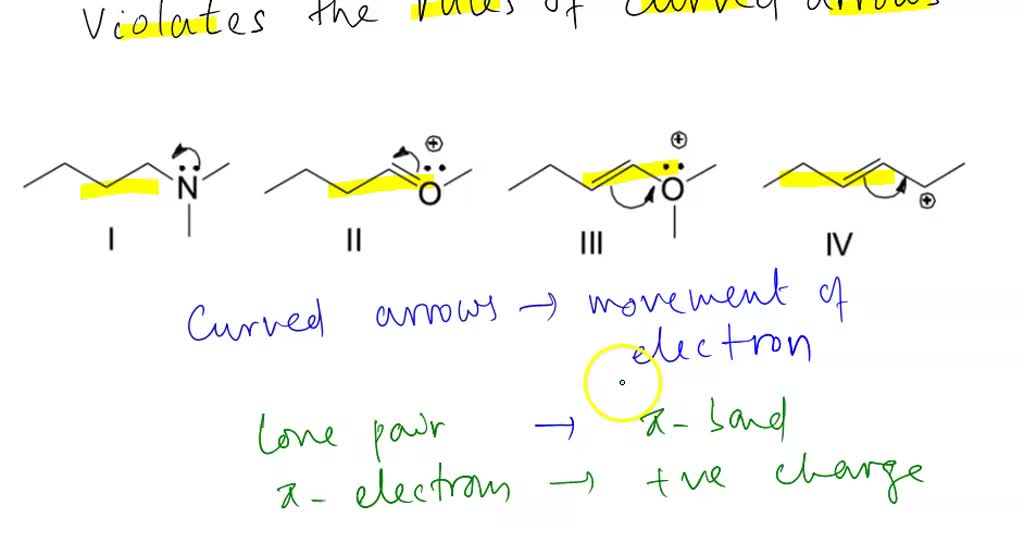 violates the rules of curved arrows
N O O
I II III IV
Curved arrows → movement of
electron
Lone pair → π-bond
π-electrons → +ve charge